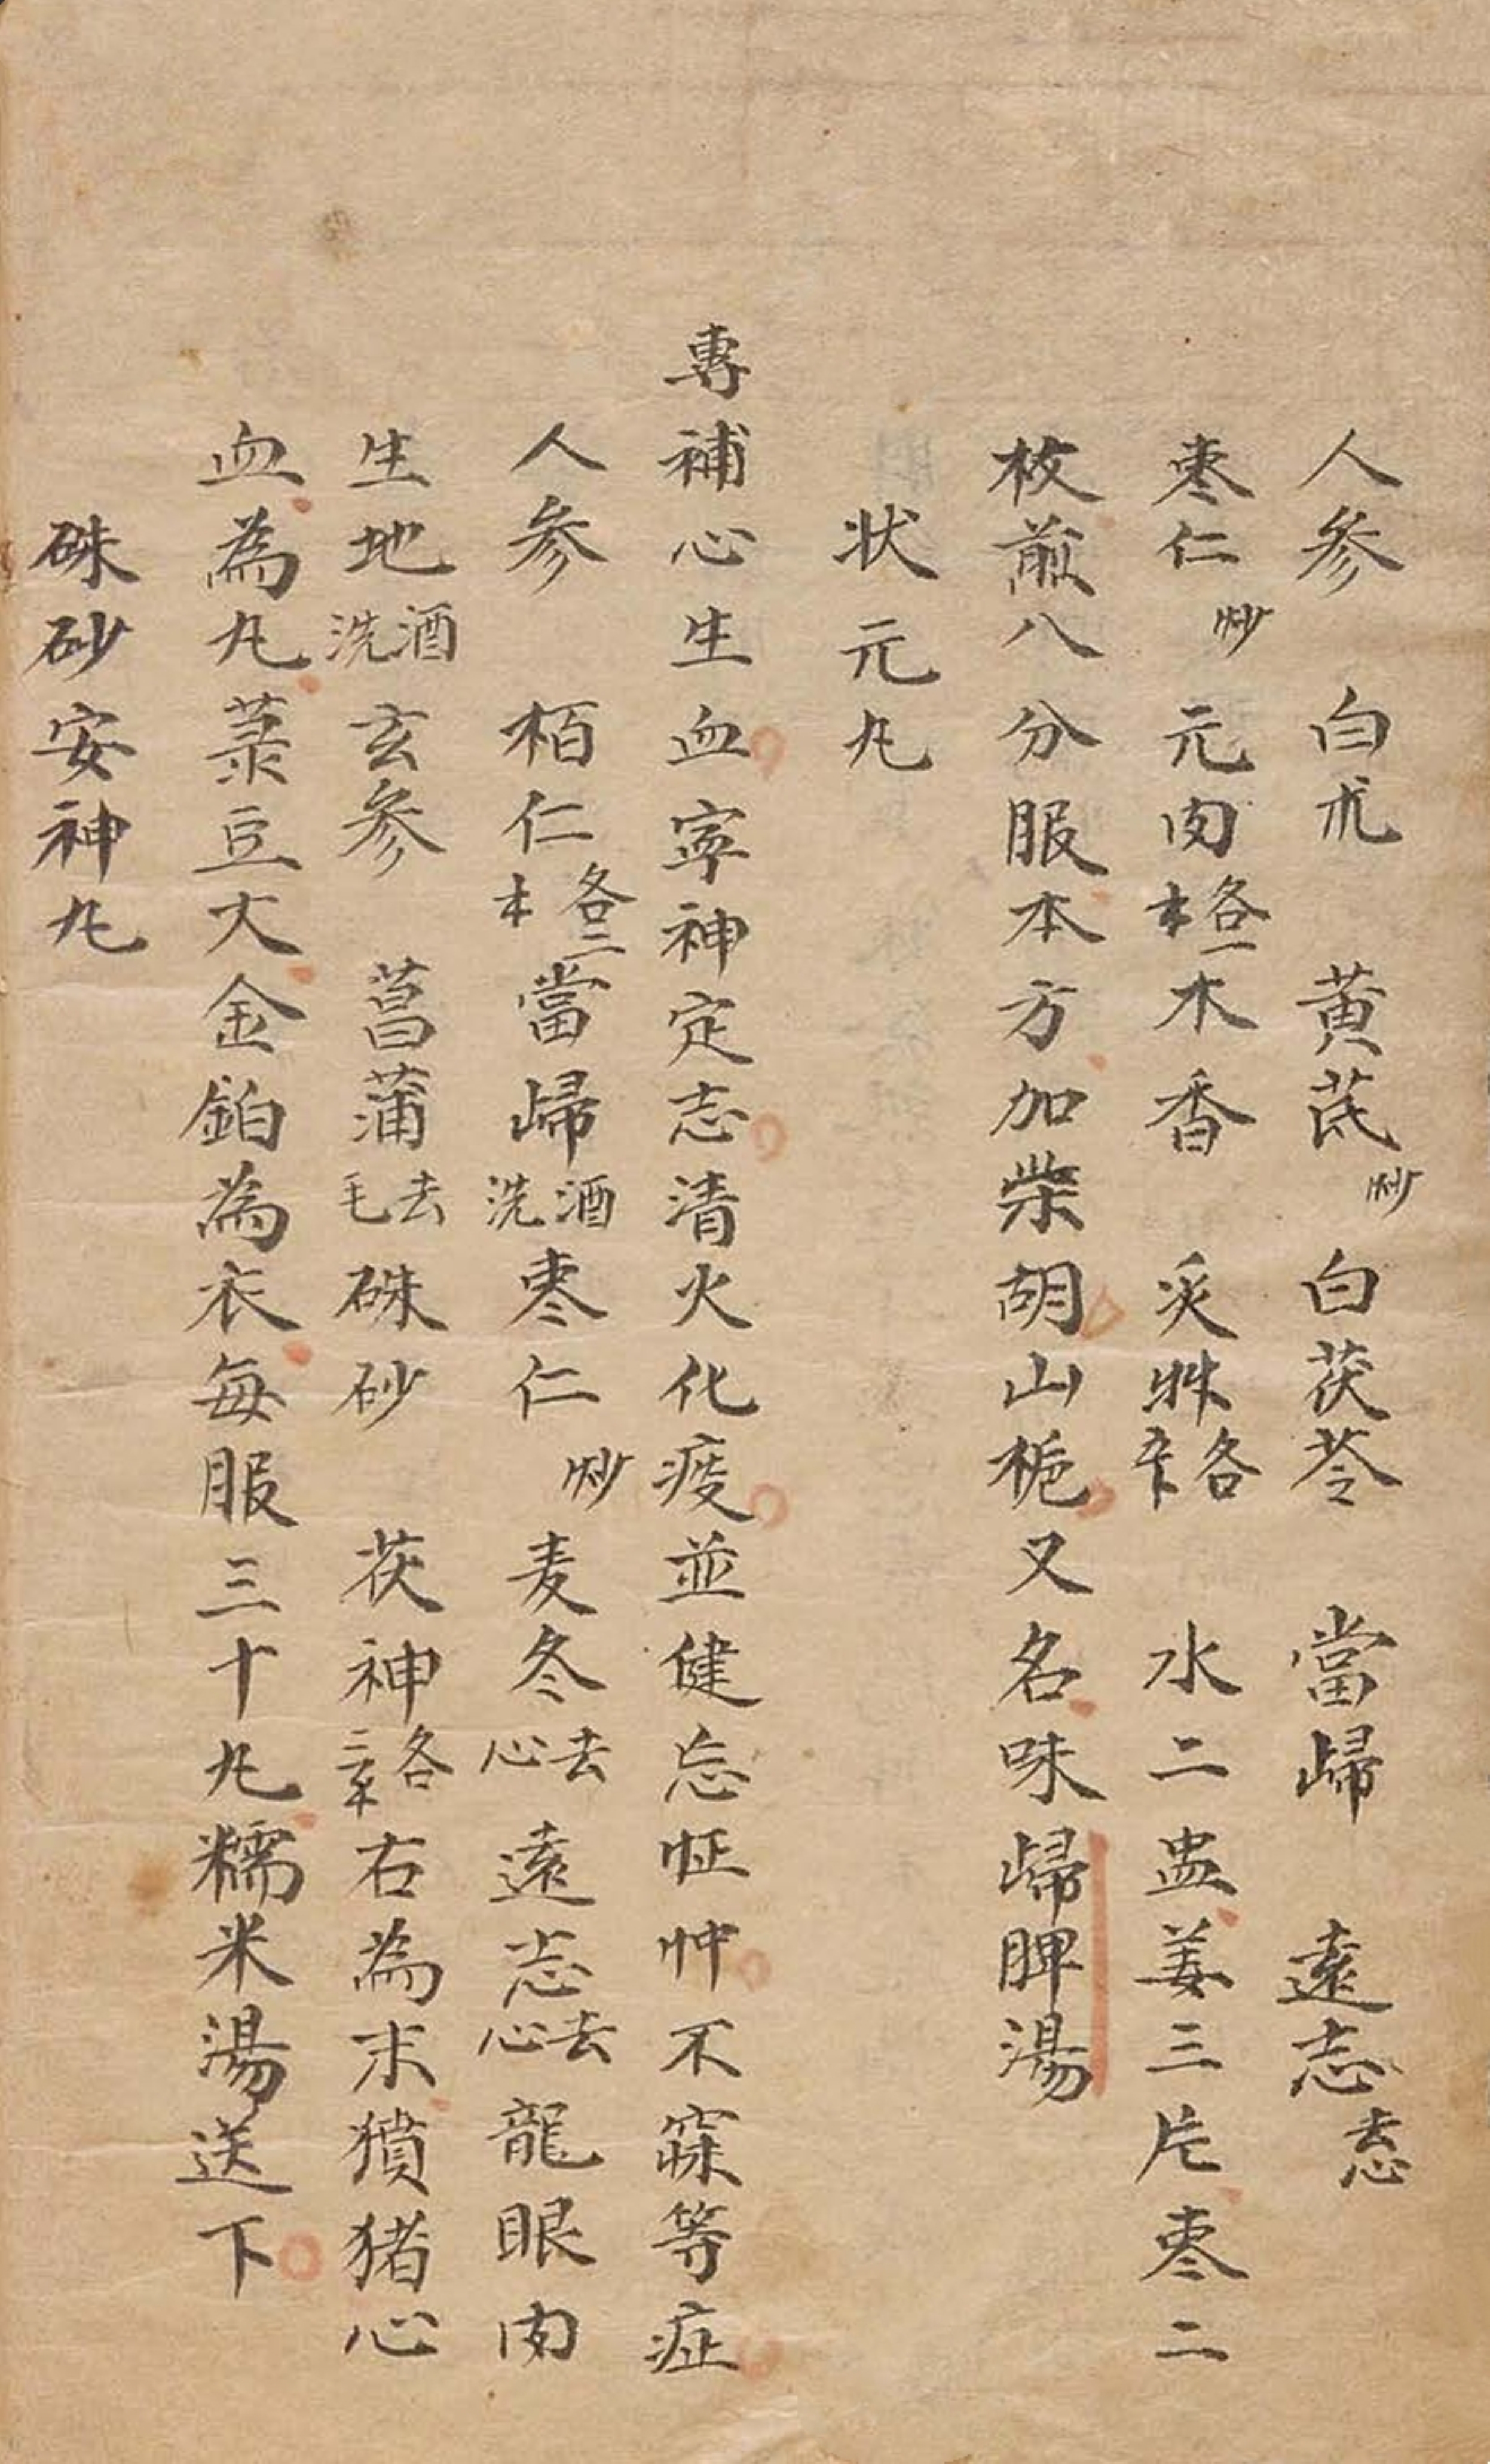 人参 白朮 黄芪炒 白茯苓 當歸 遠志去心
枣仁炒 元肉各一 木香 炙 各 水二盅姜三片枣二
枚煎八分服本方加柴胡山栀又名味歸脾湯
状元丸
專補心生血寧神定志清火化痰並健忘怔忡不寐等症
人参 栢仁各二 當歸酒洗枣仁炒 麦冬去心遠志去心龍眼肉
生地酒洗玄参 菖蒲去毛硃砂 茯神各 右為末獖猪心
血為丸菉豆大金鉑為衣每服三十丸糯米湯送下
硃砂安神丸